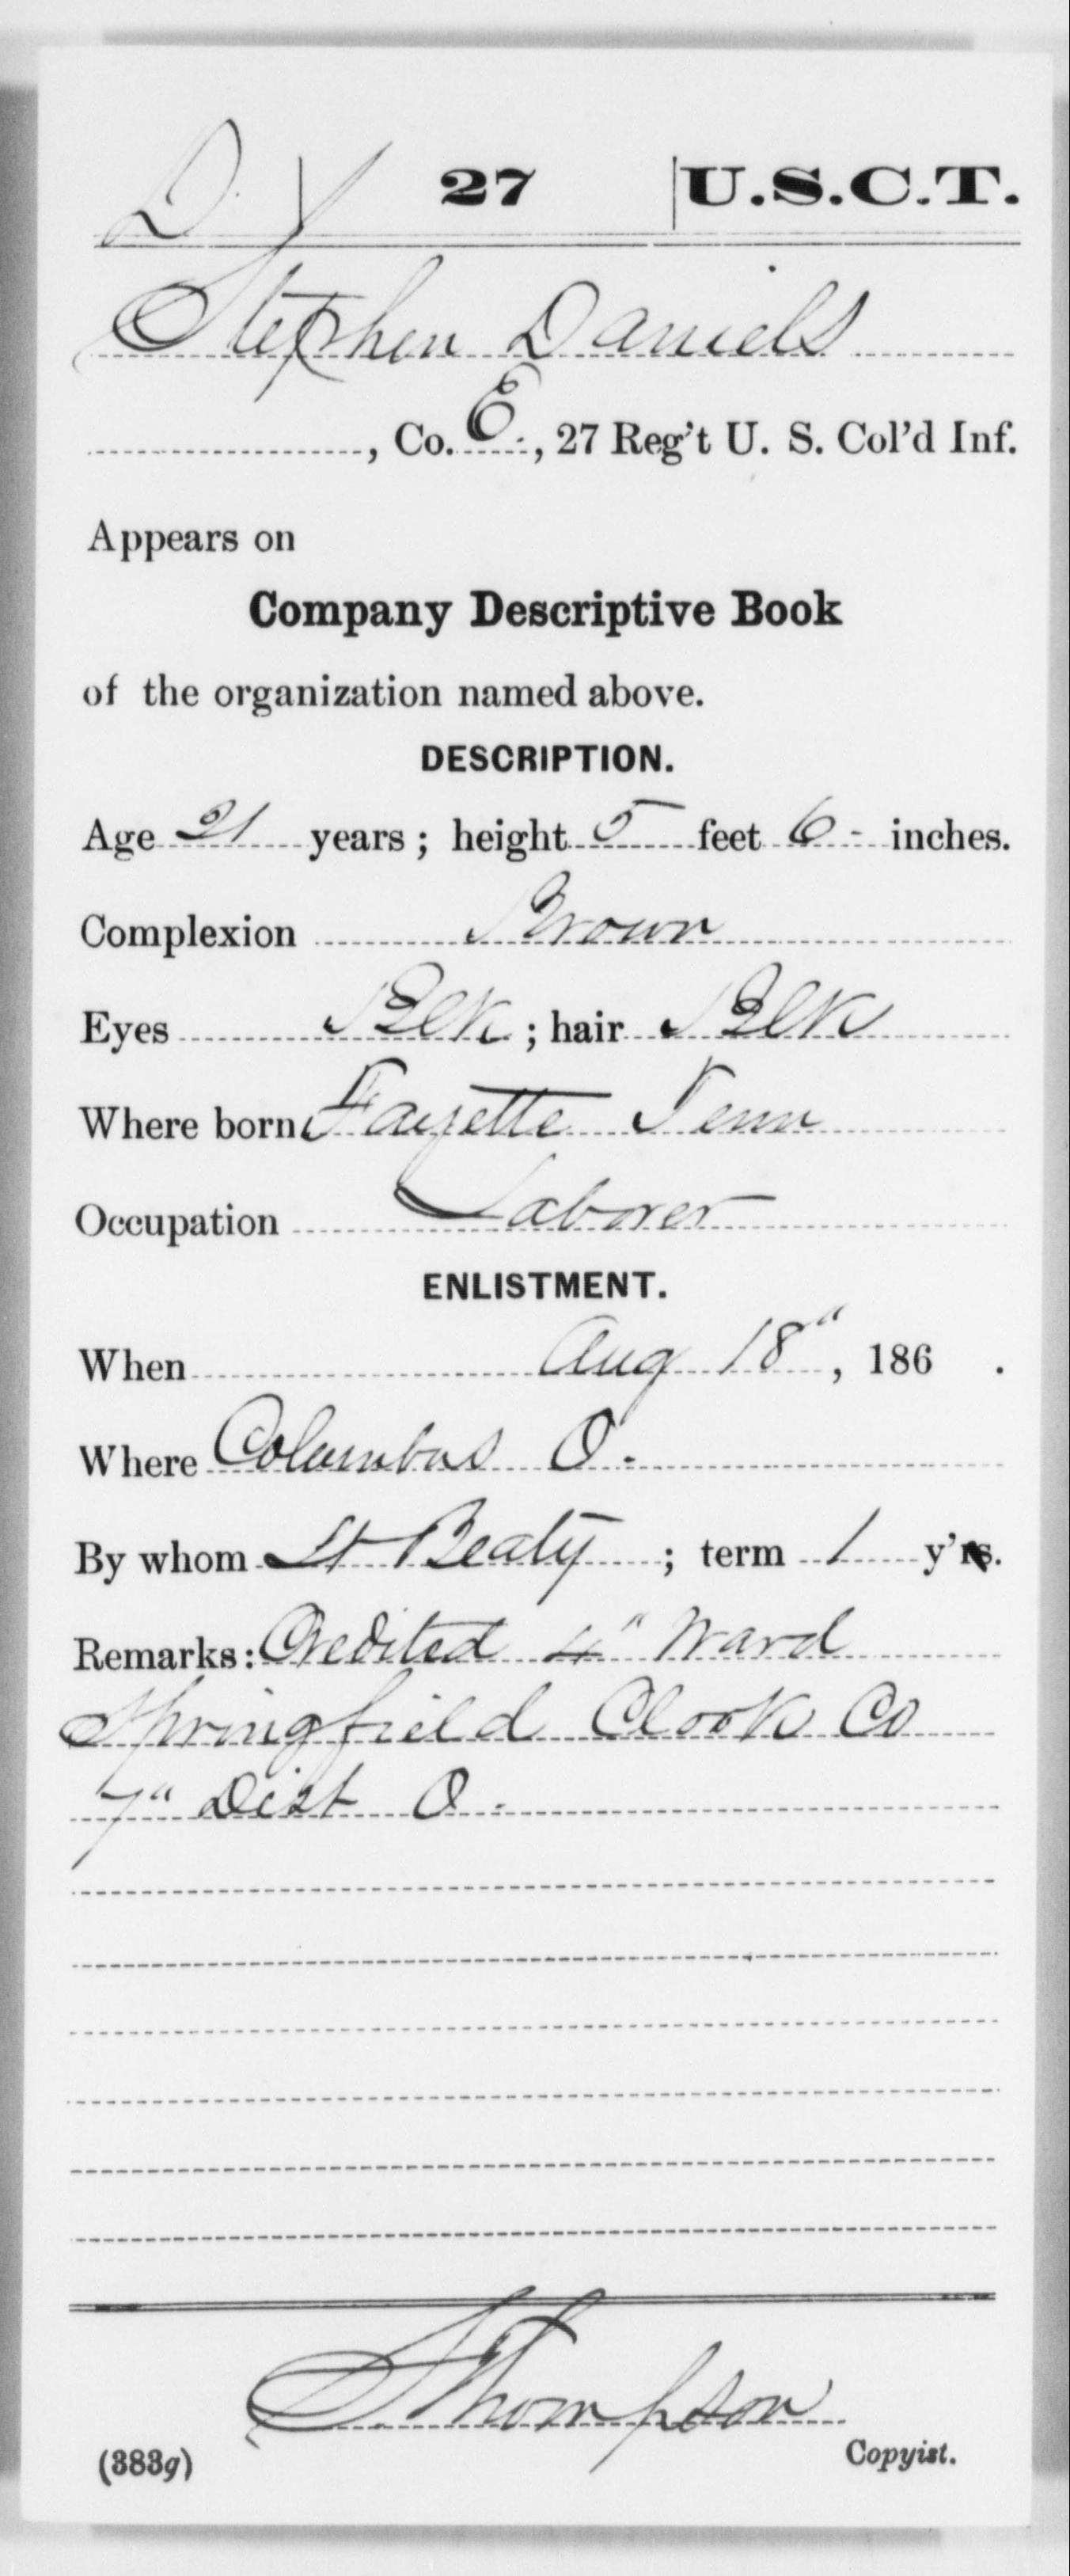 D. 27 U.S.C.T.
Stephen Daniels
, Co. E, 27 Reg't U. S. Col'd Inf.
Appears on
Company Descriptive Book
of the organization named above.
DESCRIPTION.
Age 21 years; height 5 feet 6 inches.
Complexion Brown
Eyes Blk; hair Blk
Where born Fayette Tenn
Occupation Laborer
ENLISTMENT.
When Aug 18", 186 .
Where Columbus O.
By whom Lt Beaty; term 1 y'rs.
Remarks: Credited 4" Ward
Springfield Clark Co
7" Dist O.
Thompson
(383g) Copyist.